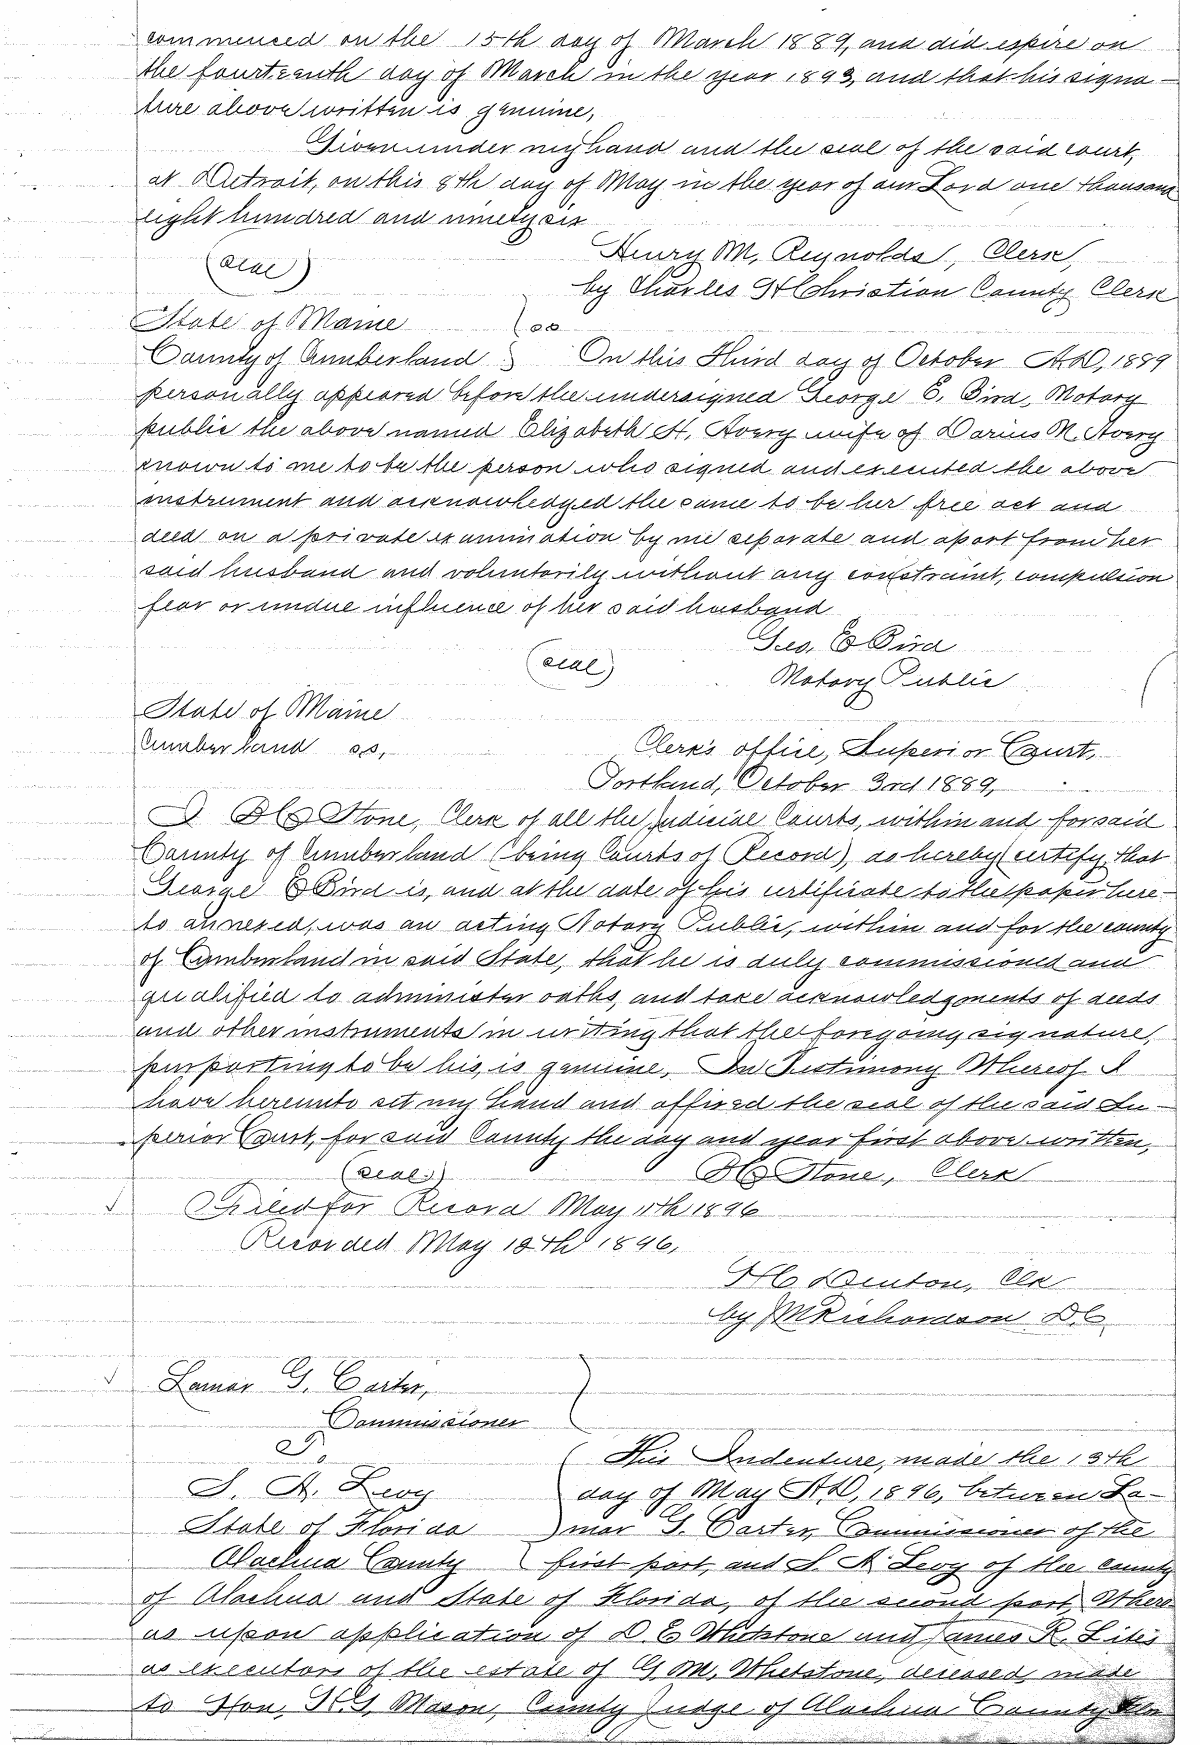 commenced on the 15th day of March 1889, and did expire on
the fourteenth day of March in the year 1893, and that his signa-
ture above written is genuine,
Given under my hand and the seal of the said court,
at Detroit, on this 8th day of May in the year of our Lord one thousand
eight hundred and ninety six
Henry M. Reynolds, Clerk,
(seal)
by Charles H Christian County Clerk
State of Maine } ss
County of Cumberland } On this Third day of October A.D, 1889
personally appeared before the undersigned George E. Bird, Notary
public the above named Elizabeth H. Avery wife of Darius N. Avery
known to me to be the person who signed and executed the above
instrument and acknowledged the same to be her free act and
deed on a private examination by me separate and apart from her
said husband and voluntarily without any constraint, compulsion
fear or undue influence of her said husband
Geo. E Bird
(seal)
Notary Public
State of Maine
Cumberland ss,
Clerk's office, Superior Court,
Portland, October 3rd 1889,
I B C Stone, Clerk of all the Judicial Courts, within and for said
County of Cumberland (being Courts of Record), do hereby certify, that
George E Bird is, and at the date of his certificate to the paper here-
to annexed, was an acting Notary Public, within and for the county
of Cumberland in said State, that he is duly commissioned and
qualified to administer oaths, and take acknowledgments of deeds
and other instruments in writing that the foregoing signature,
purporting to be his, is genuine, In Testimony Whereof I
have hereunto set my hand and affixed the seal of the said Su-
perior Court, for said County the day and year first above written,
(seal) B C Stone, Clerk
Filed for Record May 11th 1896
Recorded May 18th 1896,
H C Denton, Clk
by J M Richardson D.C.
Lamar G. Carter,
Commissioner
To
This Indenture, made the 13th
S. A. Levy day of May A.D, 1896, between La-
State of Florida mar G. Carter, Commissioner of the
Alachua County first part, and S. A. Levy of the county
of Alachua and State of Florida, of the second part, Where
as upon application of D. E Whetstone and James R. Liles
as executors of the estate of G. M. Whetstone, deceased, made
to Hon. H. G. Mason, County Judge of Alachua County Fla